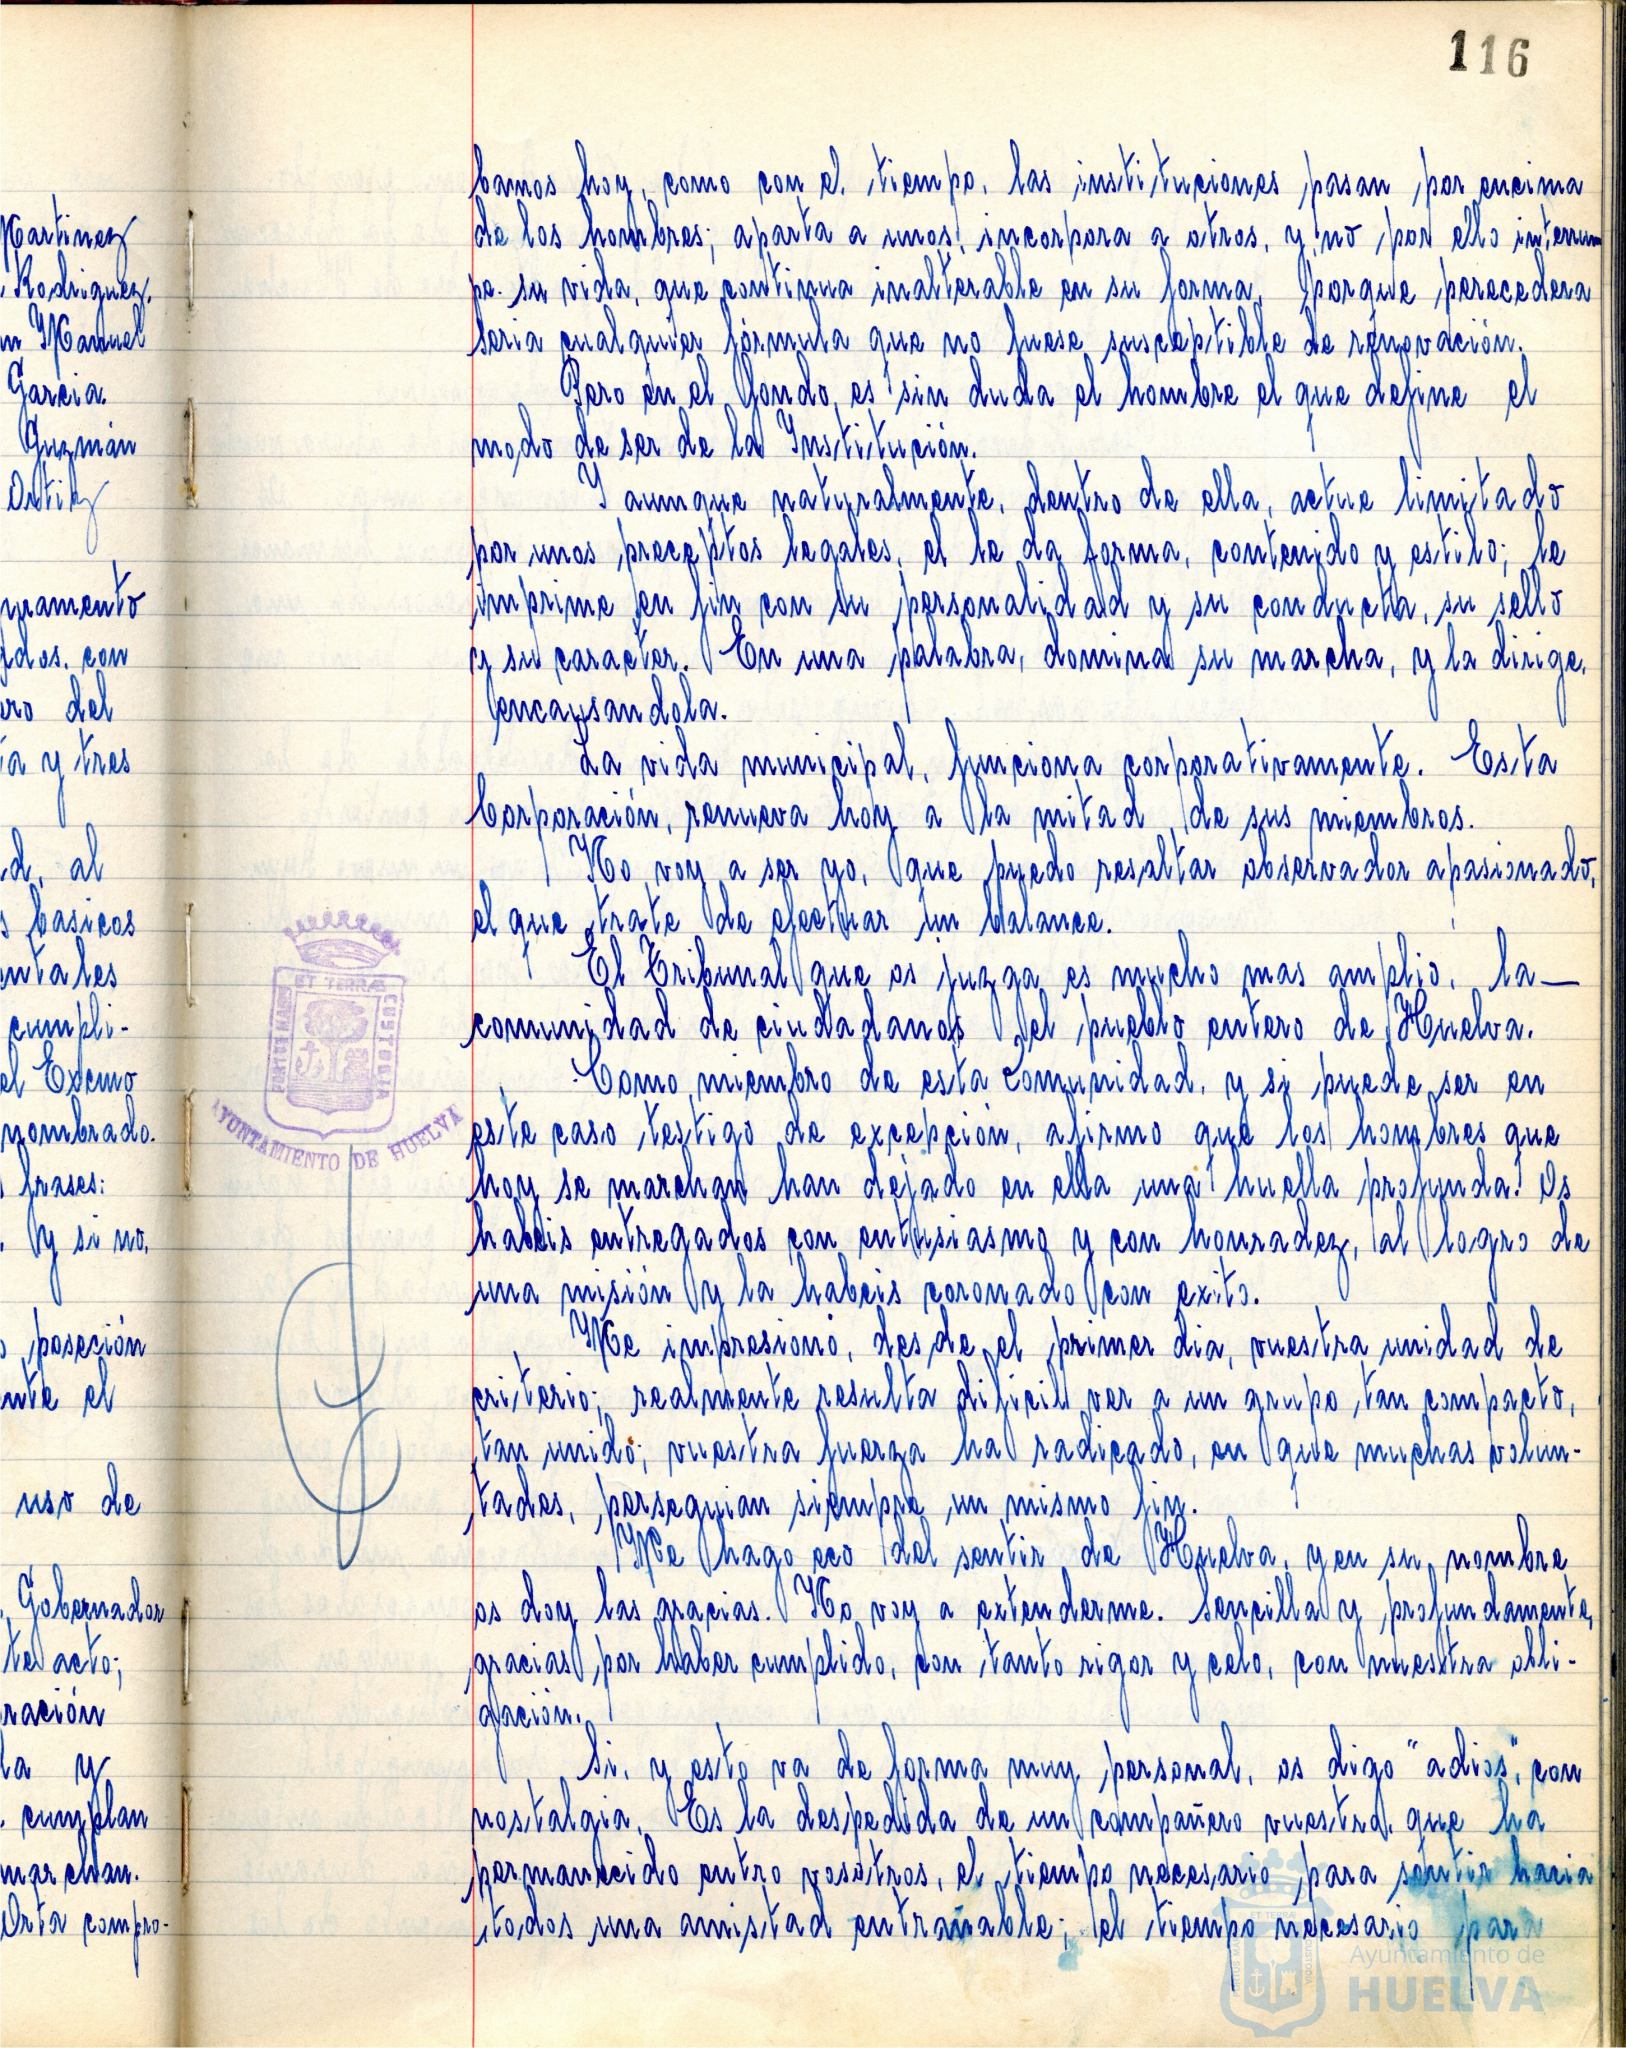 116
Martinez
Rodriguez.
n Manuel
Garcia.
Guzmán
Ortiz
uramento
dos, con
ro del
ta y tres
d, al
s basicos
ntales
cumpli-
el Excmo
nombrado.
frases:
. Y si no,
o poseción
nte el
uso de
. Gobernador
te acto;
ración
la y
. cumplan
marchan.
Orta compro-
bamos hoy, como con el tiempo, las instituciones pasan por encima
de los hombres; aparta a unos, incorpora a otros, y no por ello interrum
pe su vida, que continua inalterable en su forma, porque perecedera
seria cualquier fórmula que no fuese susceptible de renovación.
Pero en el fondo, es sin duda el hombre el que define el
modo de ser de la Institución.
Y aunque naturalmente, dentro de ella, actue limitado
por unos preceptos legales, el le da forma, contenido y estilo; le
imprime en fin con su personalidad y su conducta, su sello
y su caracter. En una palabra, domina su marcha, y la dirige,
encausandola.
La vida municipal, funciona corporativamente. Esta
Corporación, renueva hoy a la mitad de sus miembros.
No voy a ser yo, que puedo resaltar observador apasionado,
el que trate de efectuar un balance.
El Tribunal que os juzga es mucho mas amplio, la—
comunidad de ciudadanos del pueblo entero de Huelva.
Como miembro de esta comunidad, y si puede ser en
este caso testigo de excepción, afirmo que los hombres que
hoy se marchan han dejado en ella una huella profunda. Os
habeis entregados con entusiasmo y con honradez, al logro de
una misión y la habeis coronado con exito.
Me impresionó, desde el primer dia, vuestra unidad de
criterio; realmente resulta dificil ver a un grupo tan compacto,
tan unido; vuestra fuerza ha radicado, en que muchas volun-
tades, perseguian siempre un mismo fin.
Me hago eco del sentir de Huelva, y en su nombre
os doy las gracias. No voy a extenderme. Sencilla y profundamente,
gracias por haber cumplido, con tanto rigor y celo, con nuestra obli-
gación.
Si, y esto va de forma muy personal, os digo "adios", con
nostalgia. Es la despedida de un compañero vuestro, que ha
permanecido entre vosotros, el tiempo necesario para sentir hacia
todos una amistad entrañable; el tiempo necesario para
ET TERRÆ
PORTUS MARIS
CUSTODIA
AYUNTAMIENTO DE HUELVA
Ayuntamiento de
HUELVA